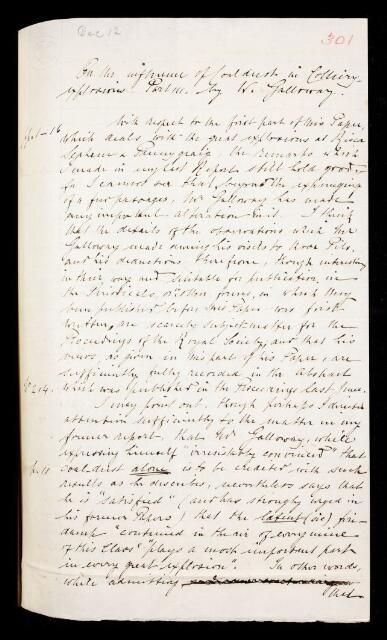 Dec 12
301
On the influence of Coal dust in Colliery
explosions. Part III. By W. Galloway.
With respect to the first part of this Paper,
which deals with the great explosions at Risca
Seaham & Penygraig, the remarks which
I made in my last Report still hold good;
for I cannot see that, beyond the expunging
of a few passages, Mr Galloway has made
any important alteration in it. I think
that the details of the observations which Mr
Galloway made during his visits to those Pits,
and his deductions therefrom, though interesting
in their way and suitable for publication in
the Periodicals, or other forms, in which they
been published before this Paper was first
written, are scarcely subject-matter for the
Proceedings of the Royal Society, and that his
views, as given in this part of his Paper, are
sufficiently fully recorded in the abstract
which was published in the Proceedings last June.
I may point out, though perhaps I directed
attention sufficiently to the matter in my
former report, that Mr Galloway, while
expressing himself "irresistibly convinced" that
coal dust alone is to be credited with such
results as he describes, nevertheless says that
he is "satisfied" (and has strongly urged in
his former Papers) that the latent (sic) fire-
damp "contained in the air of every mine
of this Class" plays a most important part
in every great explosion". In other words,
while admitting
that